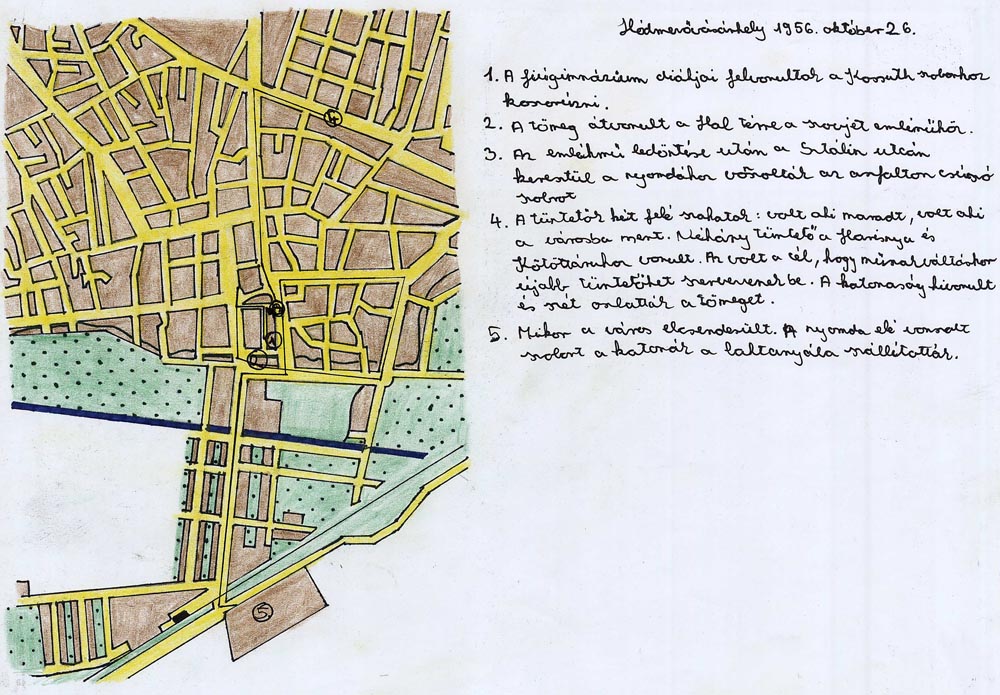 Hódmezővásárhely 1956. október 26.
1. A fiúgimnázium diákjai felvonultak a Kossuth szoborhoz
koszorúzni.
2. A tömeg átvonult a Hal térre a szovjet emléműhőz.
3. Az emlékmű ledöntése után a Sztálin utcán
keresztül a nyomdához vonszolták az aszfalton csúszó
szobrot
4. A tüntetők két felé szakatak: volt aki maradt, volt aki
a városba ment. Néhány tüntető a Harisnya és
Kötöttáruhoz vonult. Az volt a cél, hogy műszakváltáskor
újabb tüntetőket szervezzenek be. A katonaság kivonult
és szét oszlatták a tömeget.
5. Mikor a város elcsendesült. A nyomda elé vonszolt
szobort a katonák a laktanyába szállították.
4
1
5.